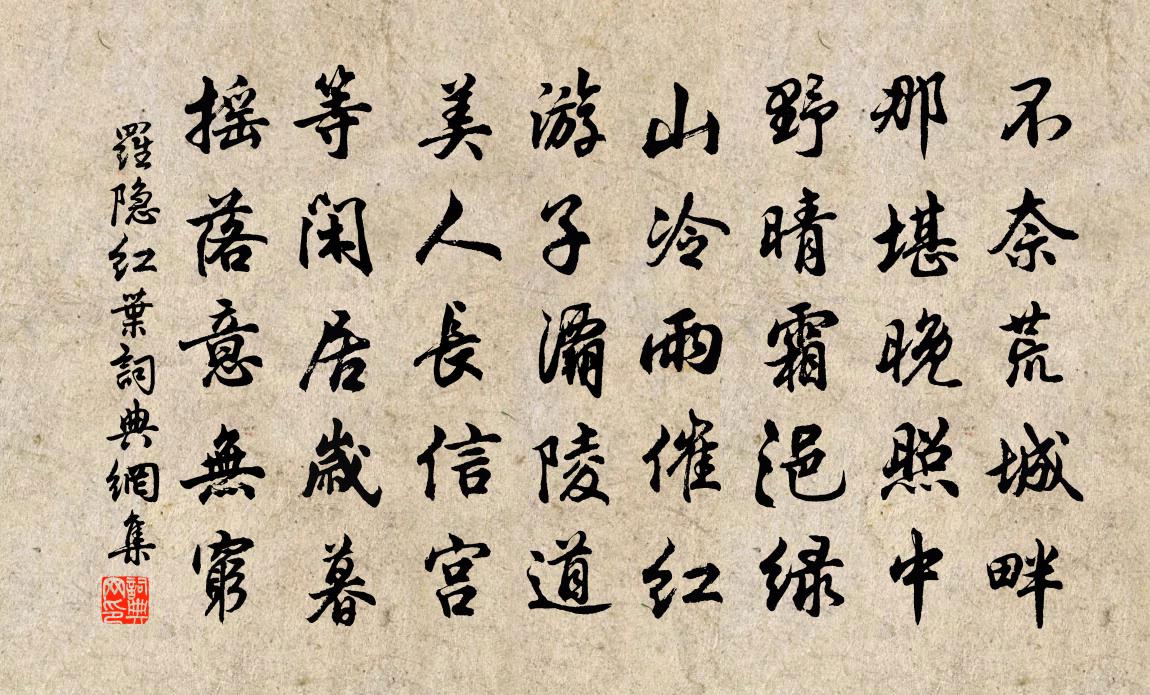 不奈荒城畔
那堪晚照中
野晴霜浥绿
山冷雨催红
游子灞陵道
美人長信宫
等闲居歲暮
摇落意無窮
羅隐红葉詞典網集
詞典
网印